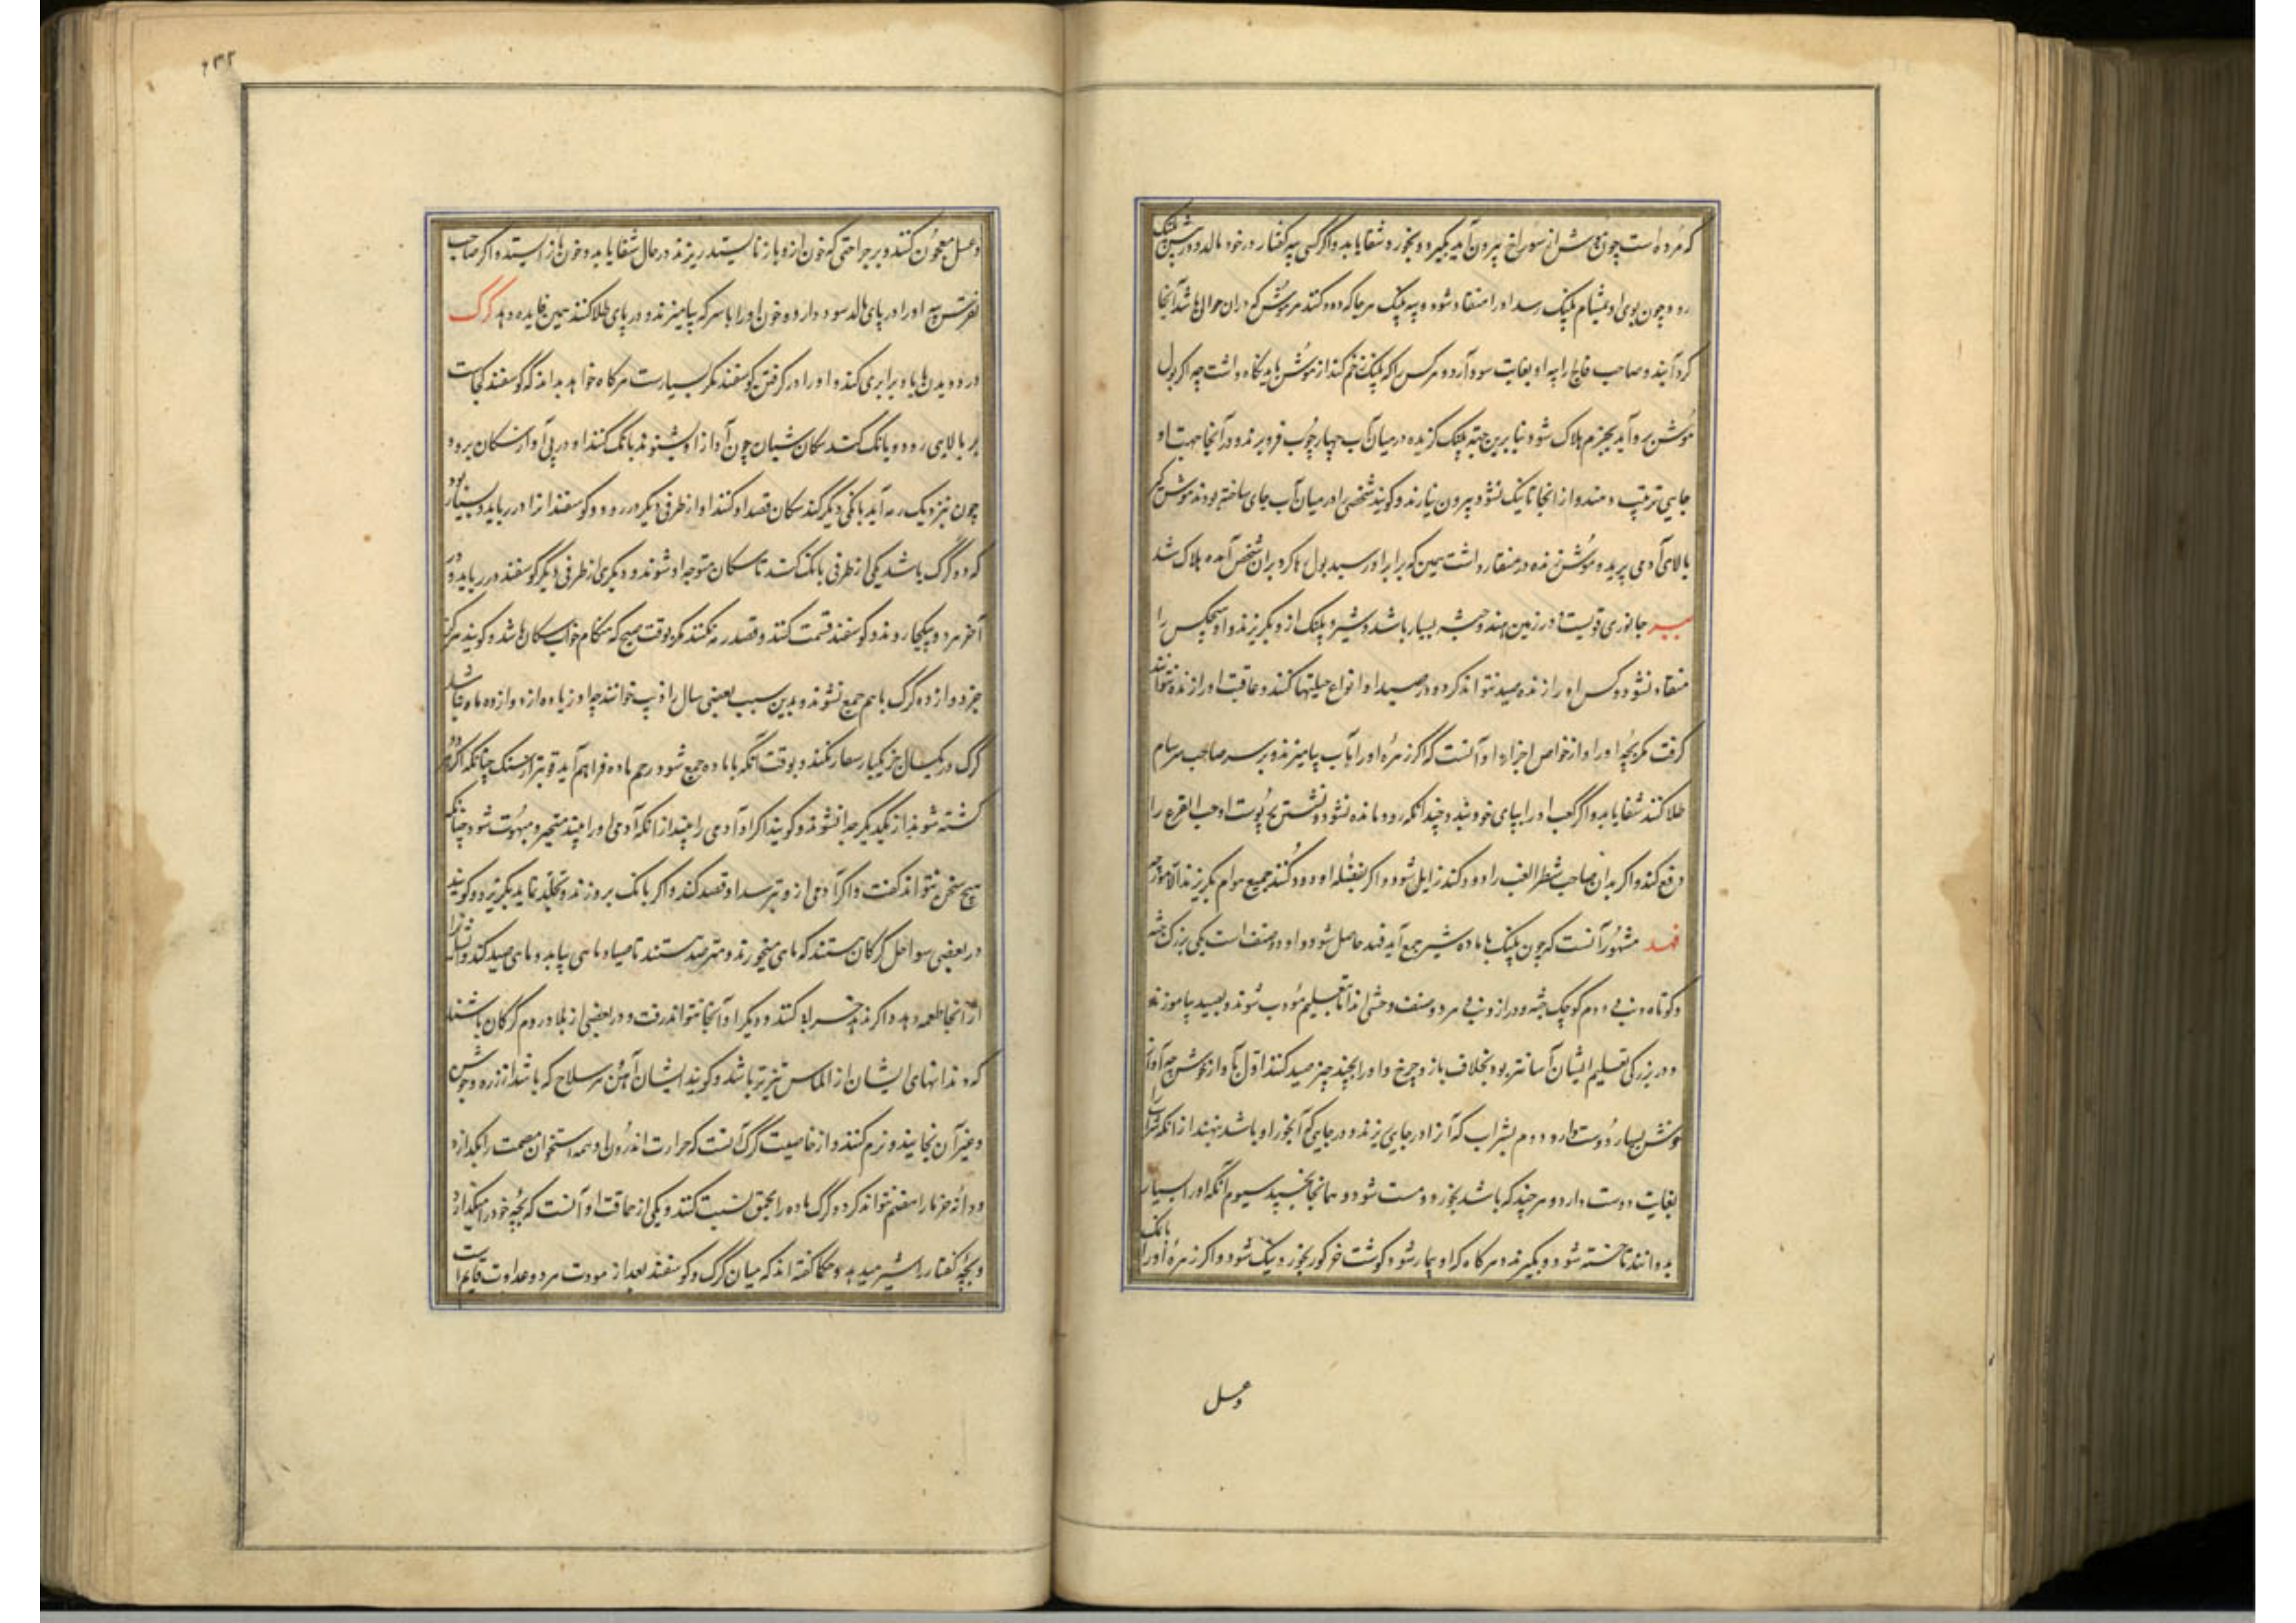 که مرده است چون موش از سوراخ بیرون آید بگیرد و بخورد و شفا یابد و اگر کسی پیه کفتار در خود مالد و در پیش پلنک
رود چون بوی او بمشام پلنک رسد او را منقاد شود و پیه پلنک هر جا که دود کنند هر موش که در آن حوالی باشد آنجا
کرد آیند و صاحب فالج را پیه او بغایت سود آرد و هر کس را که پلنک زخم کند از موش باید نکاه داشت چه اکر بول
موش برو آید بجزم هلاک شود بنا برین جهة پلنک کزیده در میان آب چهار چوب فرو برند و در آنجا بهت او
جایی ترتیب دهند و از آنجا تا نیک نشود بیرون نیارند و کویند شخصی را در میان آب جای ساخته بودند موش کیر
بالای آدمی پریده و موش زنده در منقار داشت همین که برابر او رسید بول کرد بر آن شخص آمده هلاک شد
ببر جانوری قویست در زمین هند و حبشه بسیار باشد و شیر و پلنک از و بکریزند و او هیچکس را
منقاد نشود و کس او را زنده صید نتواند کرد و در صید او انواع حیلتها کنند و عاقبت او را زنده نتوانند
کرفت مکر بچه او را و از خواص اجزاء او آنست که اکر زهره او را بآب بیامیزند و بر سر صاحب سرسام
طلا کنند شفا یابد و اکر کعب او را بپای خود بندد چندانکه رود مانده نشود و نشستن بر پوست او حب القرع را
دفع کند و اکر بدان صاحب شطر الغب را دود کنند زایل شود و اکر بفضله او دود کنند جمیع هوام بکریزند الا مورچه
فهد مشهور آنست که چون پلنک با ماده شیر جمع آید فهد حاصل شود و او دو صنف است یکی بزرک جثه
و کوتاه دنب و دوم کوچک جثه و دراز دنب و هر دو صنف وحشی اند اما بتعلیم مؤدب شوند و بصید بیاموزند
و در بزرکی تعلیم ایشان آسانتر بود بخلاف باز و چرخ و او را بچند چیز صید کنند اول بآواز خوش چه آواز
خوش بسیار دوست دارد و دوم بشراب که آنرا در جایی ریزند و در جایی که آبخور او باشد بنهند از آنکه شراب را
بغایت دوست دارد و هر چند که باشد بخورد و مست شود و همانجا بخسپد سیوم آنکه او را بسیار
بدوانند تا خسته شود و بکیرند و هر کاه که او بیمار شود کوشت خرکور بخورد نیک شود و اکر زهره او را بانک
وعسل
وعسل معجون کنند و بر جراحتی که خون از و باز نایستد ریزند در حال شفا یابد و خون باز ایستد و اکر صاحب
نقرس پیه او را در پای مالد سود دارد و خون او را با سرکه بیامیزند و در پای طلا کنند همین فایده دهد کرک
در دویدن با باد برابری کند و او را در کرفتن کوسفند مکر بسیارست هر کاه خواهد بداند که کوسفند کجاست
بر بالایی رود و بانک کند سکان شبان چون آواز او شنوند بانک کنند او در پی آواز سکان برود
چون نزدیک رمه آید بانکی دیگر کند سکان قصد او کنند او از طرفی دیکر در رود و کوسفندانرا در رباید و بسیار بود
که دو کرک باشد یکی از طرفی بانک کند تا سکان متوجه او شوند و دیکری از طرفی دیکر کوسفند در رباید و در
آخر هر دو بیکجا روند و کوسفند قسمت کنند و قصد رمه نکنند مکر بوقت صبح که هنکام خواب سکان باشد و کویند هرکز
جز دوازده کرک با هم جمع نشوند و بدین سبب بعضی سال را ذیب خوانند چه او زیاده از دوازده ماه نباشد
کرک در یکسال جز یکبار سفاد نکند و بوقت آنکه با ماده جمع شود رحم ماده فراهم آید قویتر از سک چنانکه اکر هر دو
کشته شوند از یکدیکر جدا نشوند و کویند اکر او آدمی را بیند از آنکه آدمی او را بیند متحیر و مبهوت شود چنانکه
هیچ سخن نتواند کفت و اکر آدمی از و بترسد او قصد کند و اکر بانک برو زند و تجلد نماید بکریزد و کویند
در بعضی سواحل کرکان هستند که ماهی میخورند و مترصد هستند تا صیاد ماهی بیاید و ماهی صید کند و ایشانرا
از آنجا طعمه دهد و اکر ندهد خراب کنند و دیکر او آنجا نتواند رفت و در بعضی از بلاد روم کرکان باشند
که دندانهای ایشان از الماس تیزتر باشد و کویند ایشان آهن هر سلاح که باشد از زره و جوشن
و غیر آن بخایند و نرم کنند و از خاصیت کرک آنست که حرارت اندرون او همه استخوان مصمت را بکدازد
و دانه خرما را هضم نتواند کرد و کرک ماده را بحمق نسبت کنند و یکی از حماقت او آنست که بچه خود را میکذارد
و بچه کفتار را شیر میدهد و حکما کفته اند که میان کرک و کوسفند بعد از موت هر دو عداوت قایم است